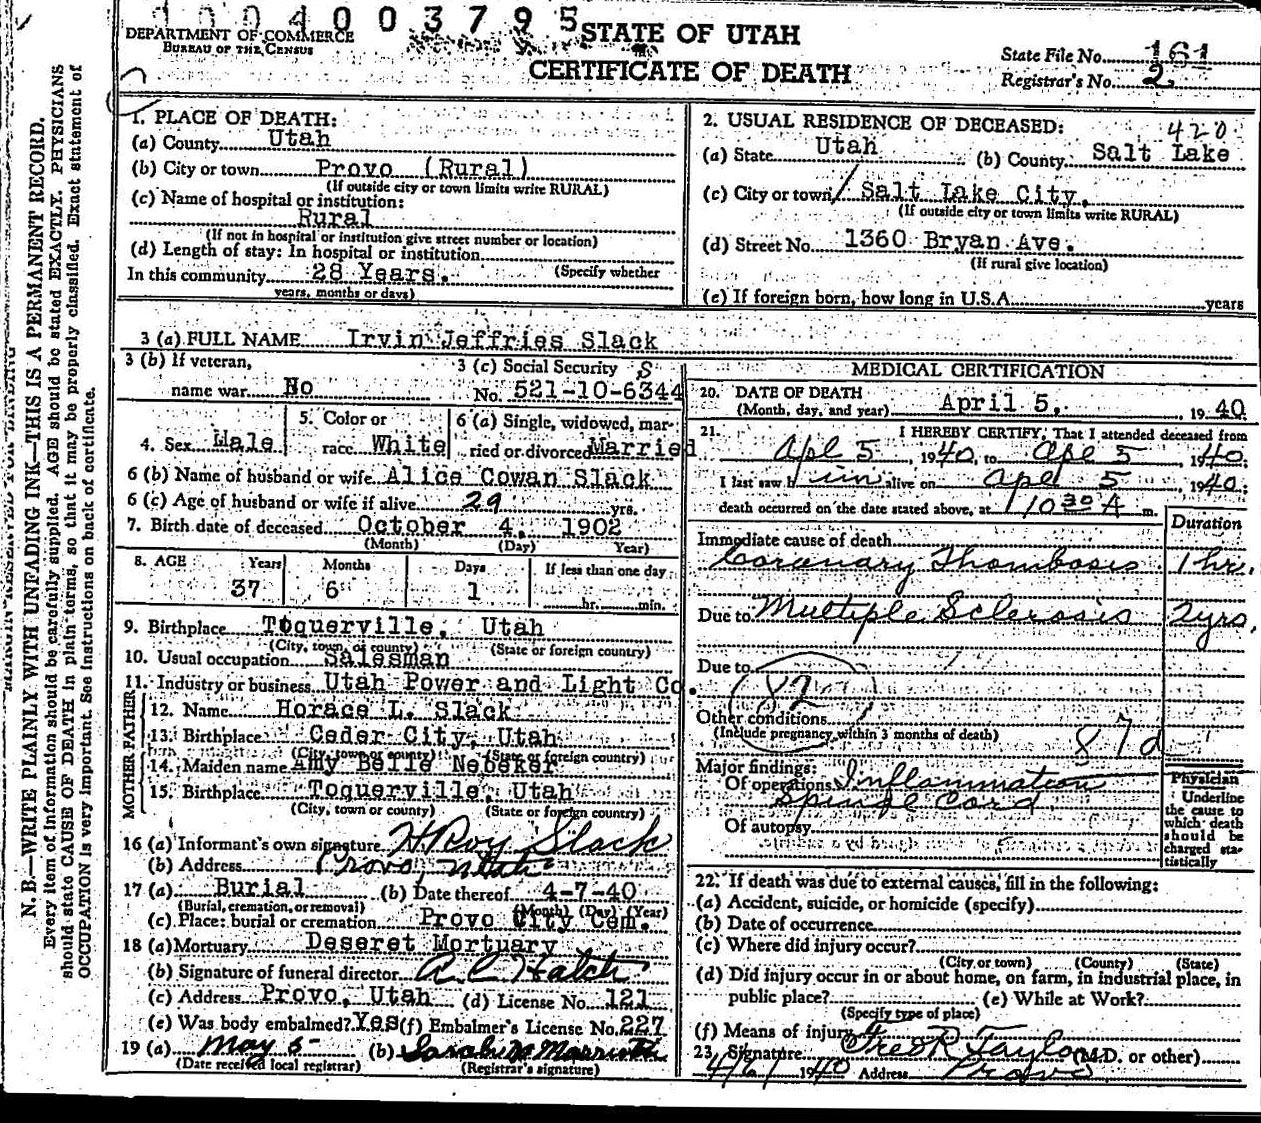 1004003795
DEPARTMENT OF COMMERCE
BUREAU OF THE CENSUS
STATE OF UTAH
CERTIFICATE OF DEATH
State File No. 161
Registrar's No. 2
N. B.—WRITE PLAINLY WITH UNFADING INK—THIS IS A PERMANENT RECORD.
Every item of information should be carefully supplied. AGE should be stated EXACTLY. PHYSICIANS
should state CAUSE OF DEATH in plain terms, so that it may be properly classified. Exact statement of
OCCUPATION is very important. See instructions on back of certificate.
1. PLACE OF DEATH:
(a) County Utah
(b) City or town Provo (Rural)
(If outside city or town limits write RURAL)
(c) Name of hospital or institution:
Rural
(If not in hospital or institution give street number or location)
(d) Length of stay: In hospital or institution
In this community 28 Years. (Specify whether
years, months or days)
2. USUAL RESIDENCE OF DECEASED:
420
(a) State Utah (b) County Salt Lake
(c) City or town Salt Lake City,
(If outside city or town limits write RURAL)
(d) Street No. 1360 Bryan Ave.
(If rural give location)
(e) If foreign born, how long in U.S.A. years
3 (a) FULL NAME Irvin Jeffries Slack
3 (b) If veteran,
name war No
3 (c) Social Security S
No. 521-10-6344
4. Sex Male
5. Color or
race White
6 (a) Single, widowed, mar-
ried or divorced Married
6 (b) Name of husband or wife Alice Cowan Slack
6 (c) Age of husband or wife if alive 29 yrs.
7. Birth date of deceased October 4, 1902
(Month) (Day) Year)
8. AGE Years Months Days If less than one day
37 6 1 hr. min.
9. Birthplace Toquerville, Utah
(City, town, or county) (State or foreign country)
10. Usual occupation Salesman
11. Industry or business Utah Power and Light Co.
FATHER
12. Name Horace L. Slack
13. Birthplace Ceder City, Utah
(City, town or county) (State or foreign country)
MOTHER
14. Maiden name Amy Belle Nebeker
15. Birthplace Toquerville, Utah
(City, town or county) (State or foreign country)
16 (a) Informant's own signature H Roy Slack
(b) Address Provo, Utah
17 (a) Burial (b) Date thereof 4-7-40
(Burial, cremation, or removal) (Month) (Day) (Year)
(c) Place: burial or cremation Provo City Cem.
18 (a) Mortuary Deseret Mortuary
(b) Signature of funeral director A C Hatch
(c) Address Provo, Utah (d) License No. 121
(e) Was body embalmed? Yes (f) Embalmer's License No. 227
19 (a) May 5 (b) Sarah
(Date received local registrar) (Registrar's signature)
MEDICAL CERTIFICATION
20. DATE OF DEATH
(Month, day, and year) April 5, 1940
21. I HEREBY CERTIFY, That I attended deceased from
Apl 5, 1940, to Apl 5 1940;
I last saw him alive on Apl 5 1940;
death occurred on the date stated above, at 10 30 A m.
Duration
Immediate cause of death
Coronary Thombosis 1 hr.
Due to Multiple Sclerosis 2 yrs.
Due to
82
Other conditions
(Include pregnancy within 3 months of death)
87d
Major findings:
Of operations Inflammation
Spinal Cord
Of autopsy
Physician
Underline
the cause to
which death
should be
charged sta-
tistically
22. If death was due to external causes, fill in the following:
(a) Accident, suicide, or homicide (specify)
(b) Date of occurrence
(c) Where did injury occur?
(City or town) (County) (State)
(d) Did injury occur in or about home, on farm, in industrial place, in
public place? (e) While at Work?
(Specify type of place)
(f) Means of injury
23. Signature Fred R Taylor (M.D. or other)
4/6/ 1940 Address Provo